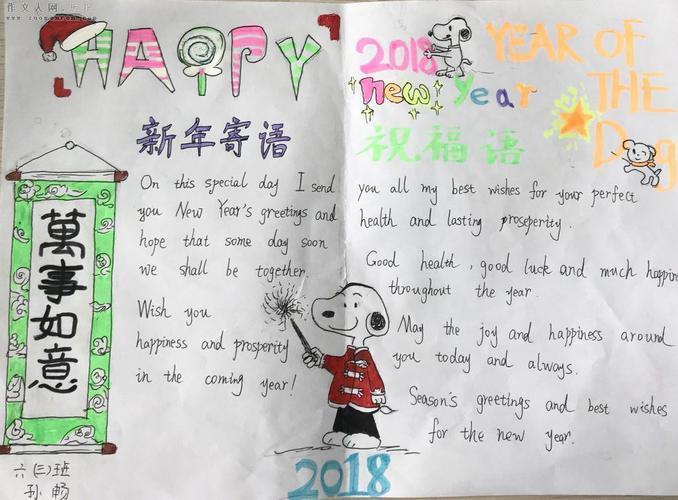 作文人网
HAPPY
2018
new Year
YEAR OF
THE
Dog
新年寄语
祝福语
萬事如意
On this special day I send
you New Year's greetings and
hope that some day soon
we shall be together.
Wish you
happiness and prosperity
in the coming year!
you all my best wishes for your perfect
health and lasting prosperity.
Good health, good luck and much happin
throughout the year.
May the joy and happiness around
you today and always.
Season's greetings and best wishes
for the new year.
2018
六(三)班
孙畅